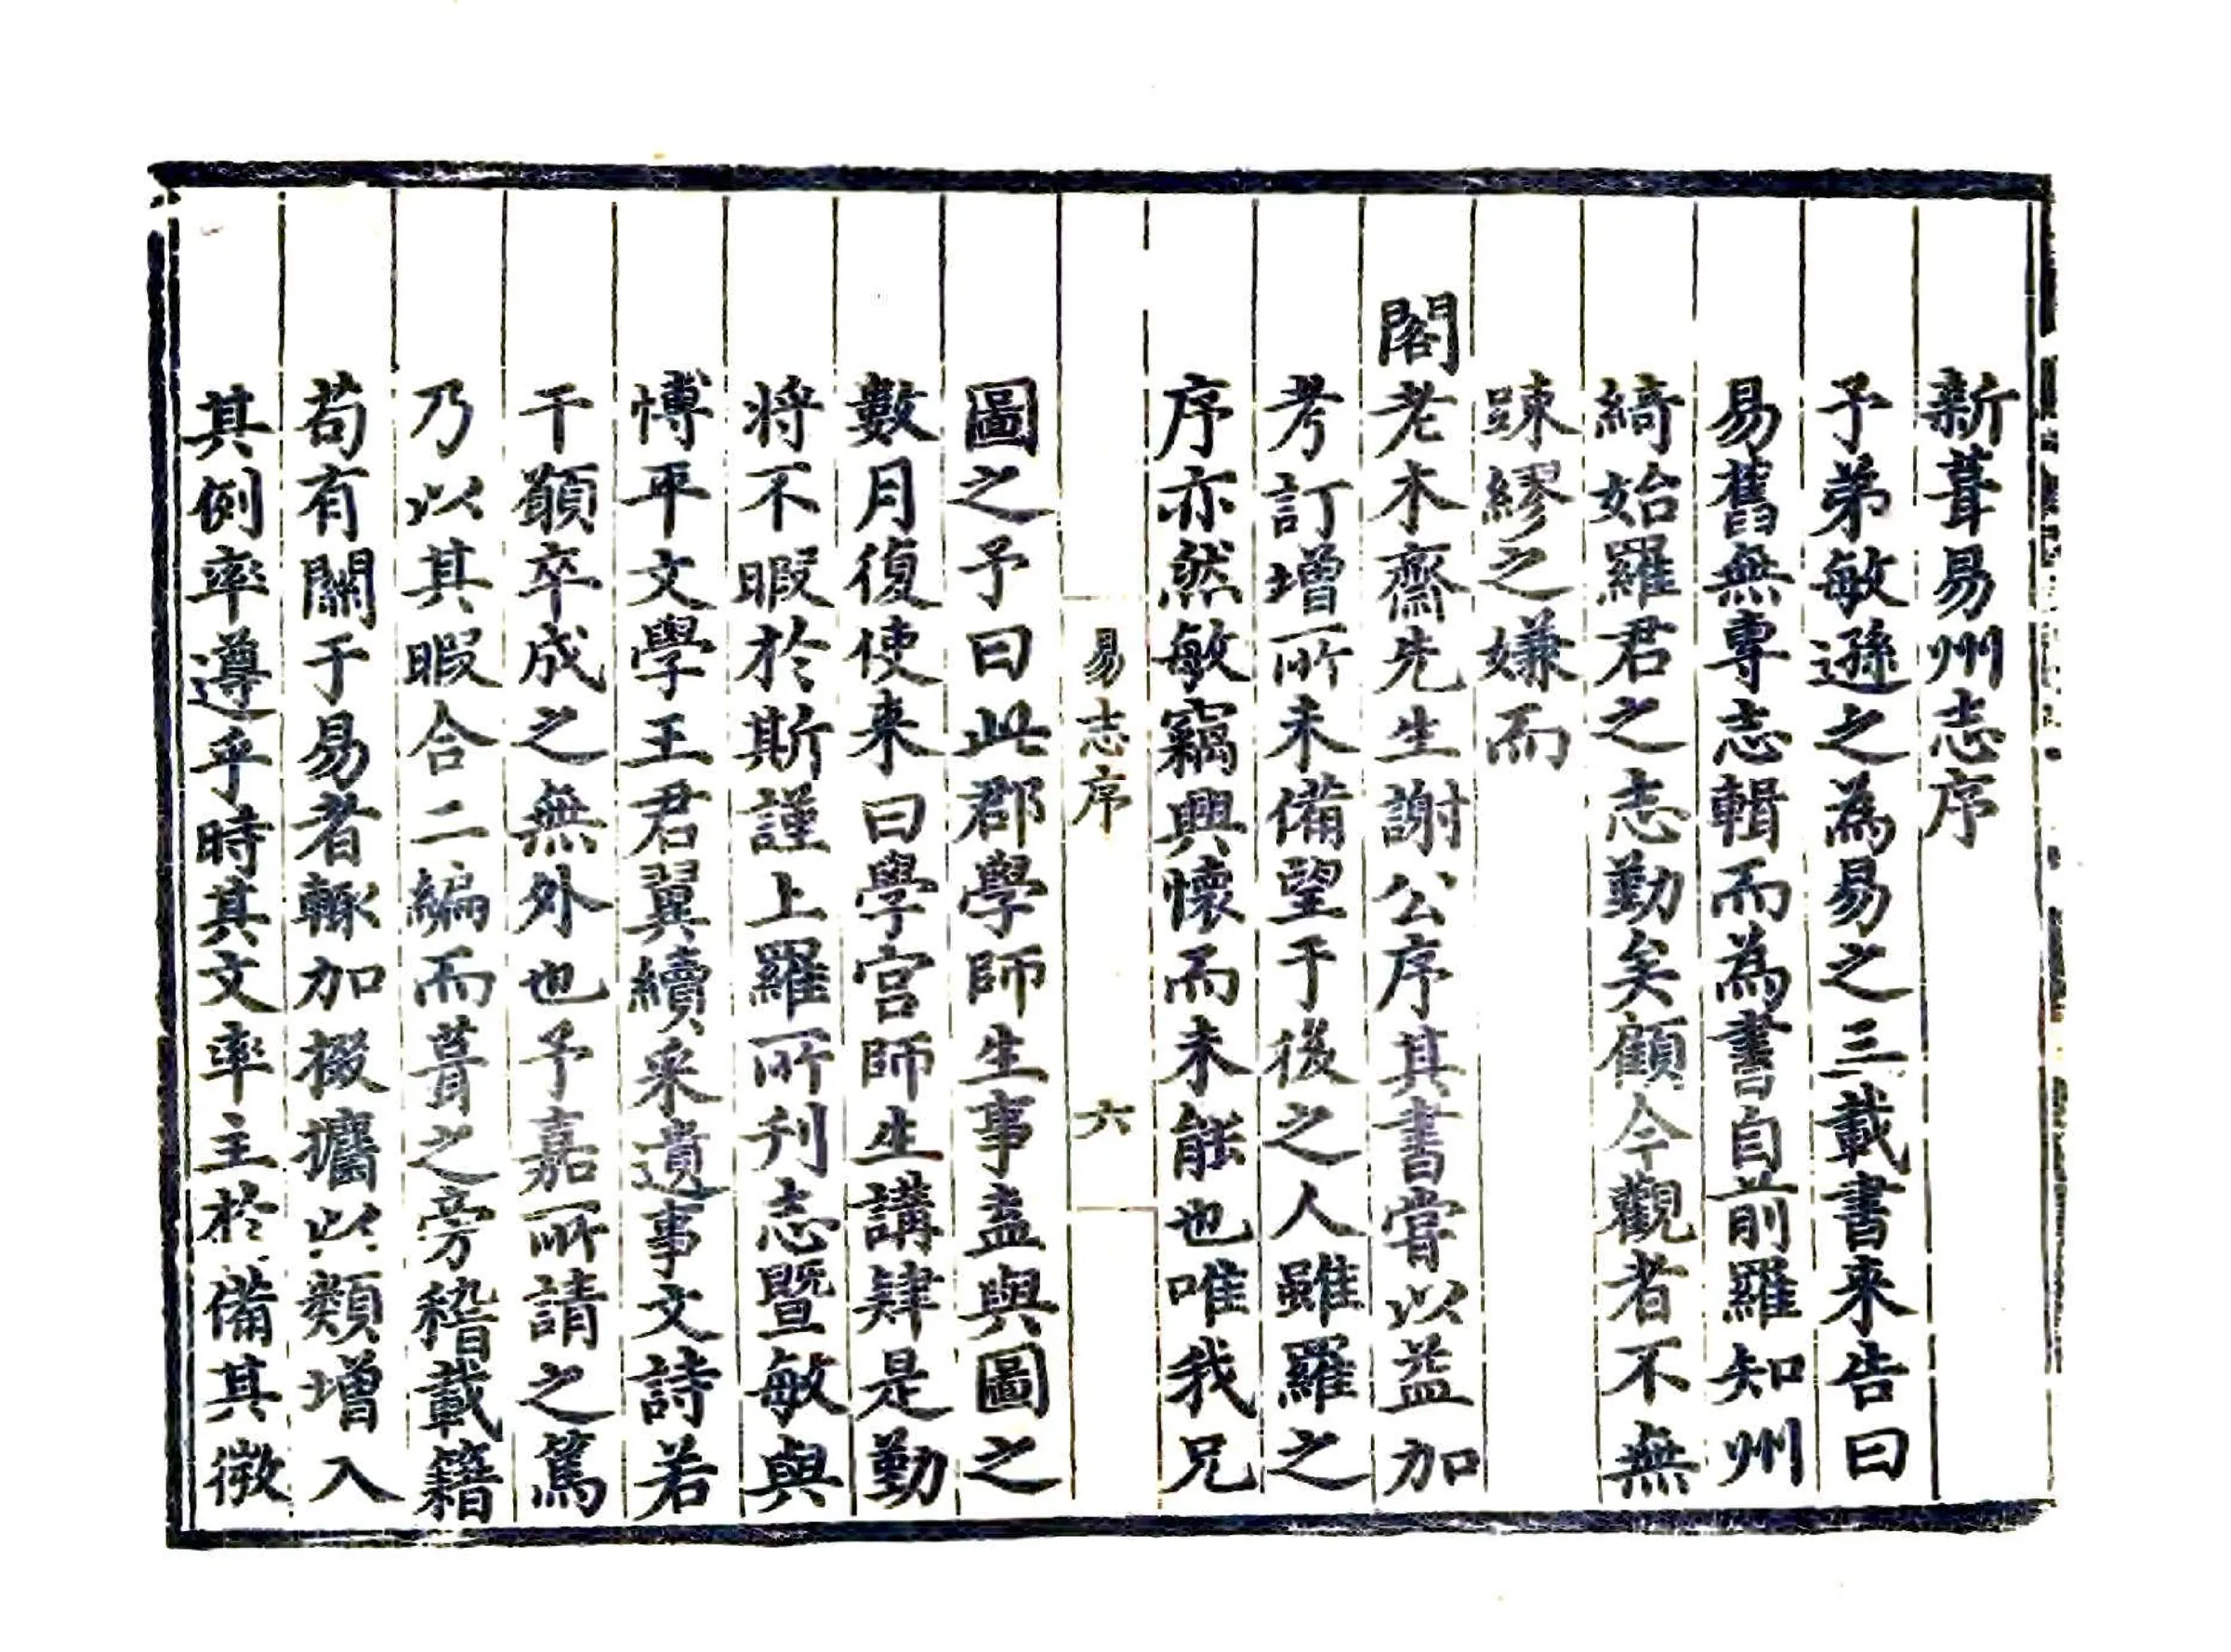 新葺易州志序
予弟敏遜之為易之三載書来告曰
易舊無專志輯而為書自前羅知州
綺始羅君之志勤矣顧今觀者不無
踈繆之嫌而
閣老木齋先生謝公序其書嘗以益加
考訂增所未備望于後之人雖羅之
序亦然敏竊興懷而未能也唯我兄
易志序
六
圖之予曰此郡學師生事盍與圖之
數月復使来曰學宫師生講肄是勤
将不暇於斯謹上羅所刋志暨敏與
愽平文學王君翼續采遺事文詩若
干顓卒成之無外也予嘉所請之篤
乃以其暇合二編而葺之旁稽載籍
苟有關于易者輙加掇攟以類增入
其例率遵乎時其文率主於備其徴